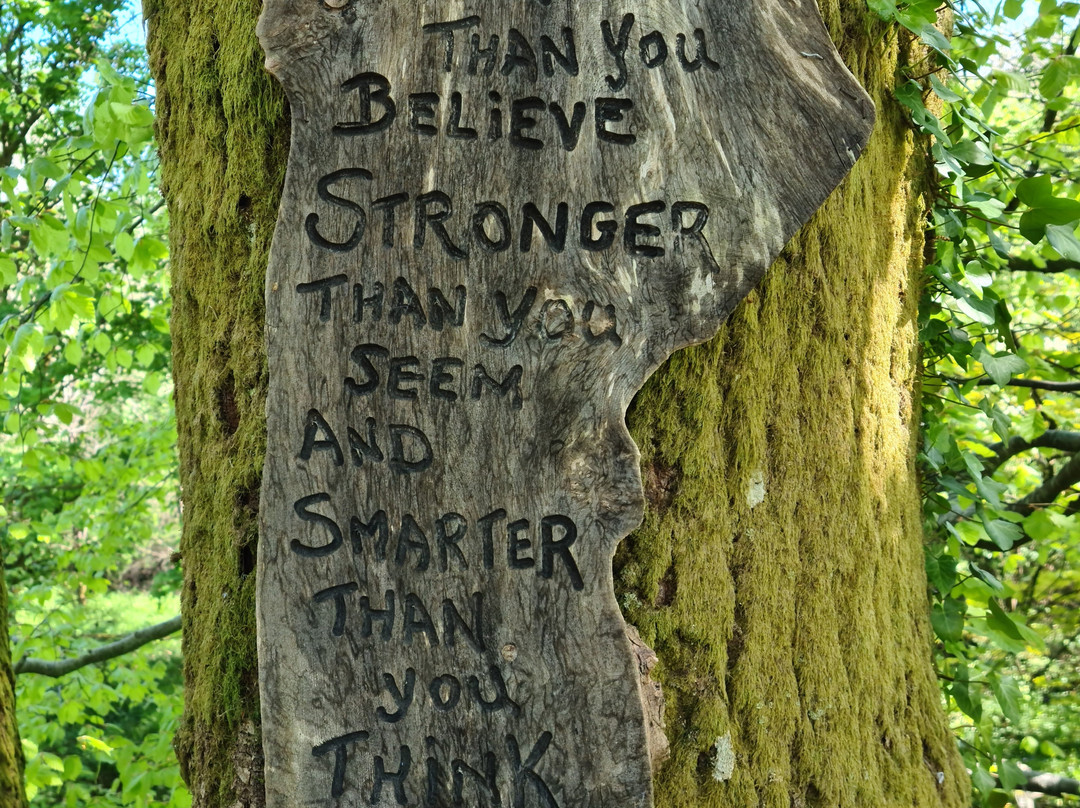 THAN you
BELiEVE
STRONGER
THAN you
SEEM
AND
SMARTER
THAN
you
THiNK